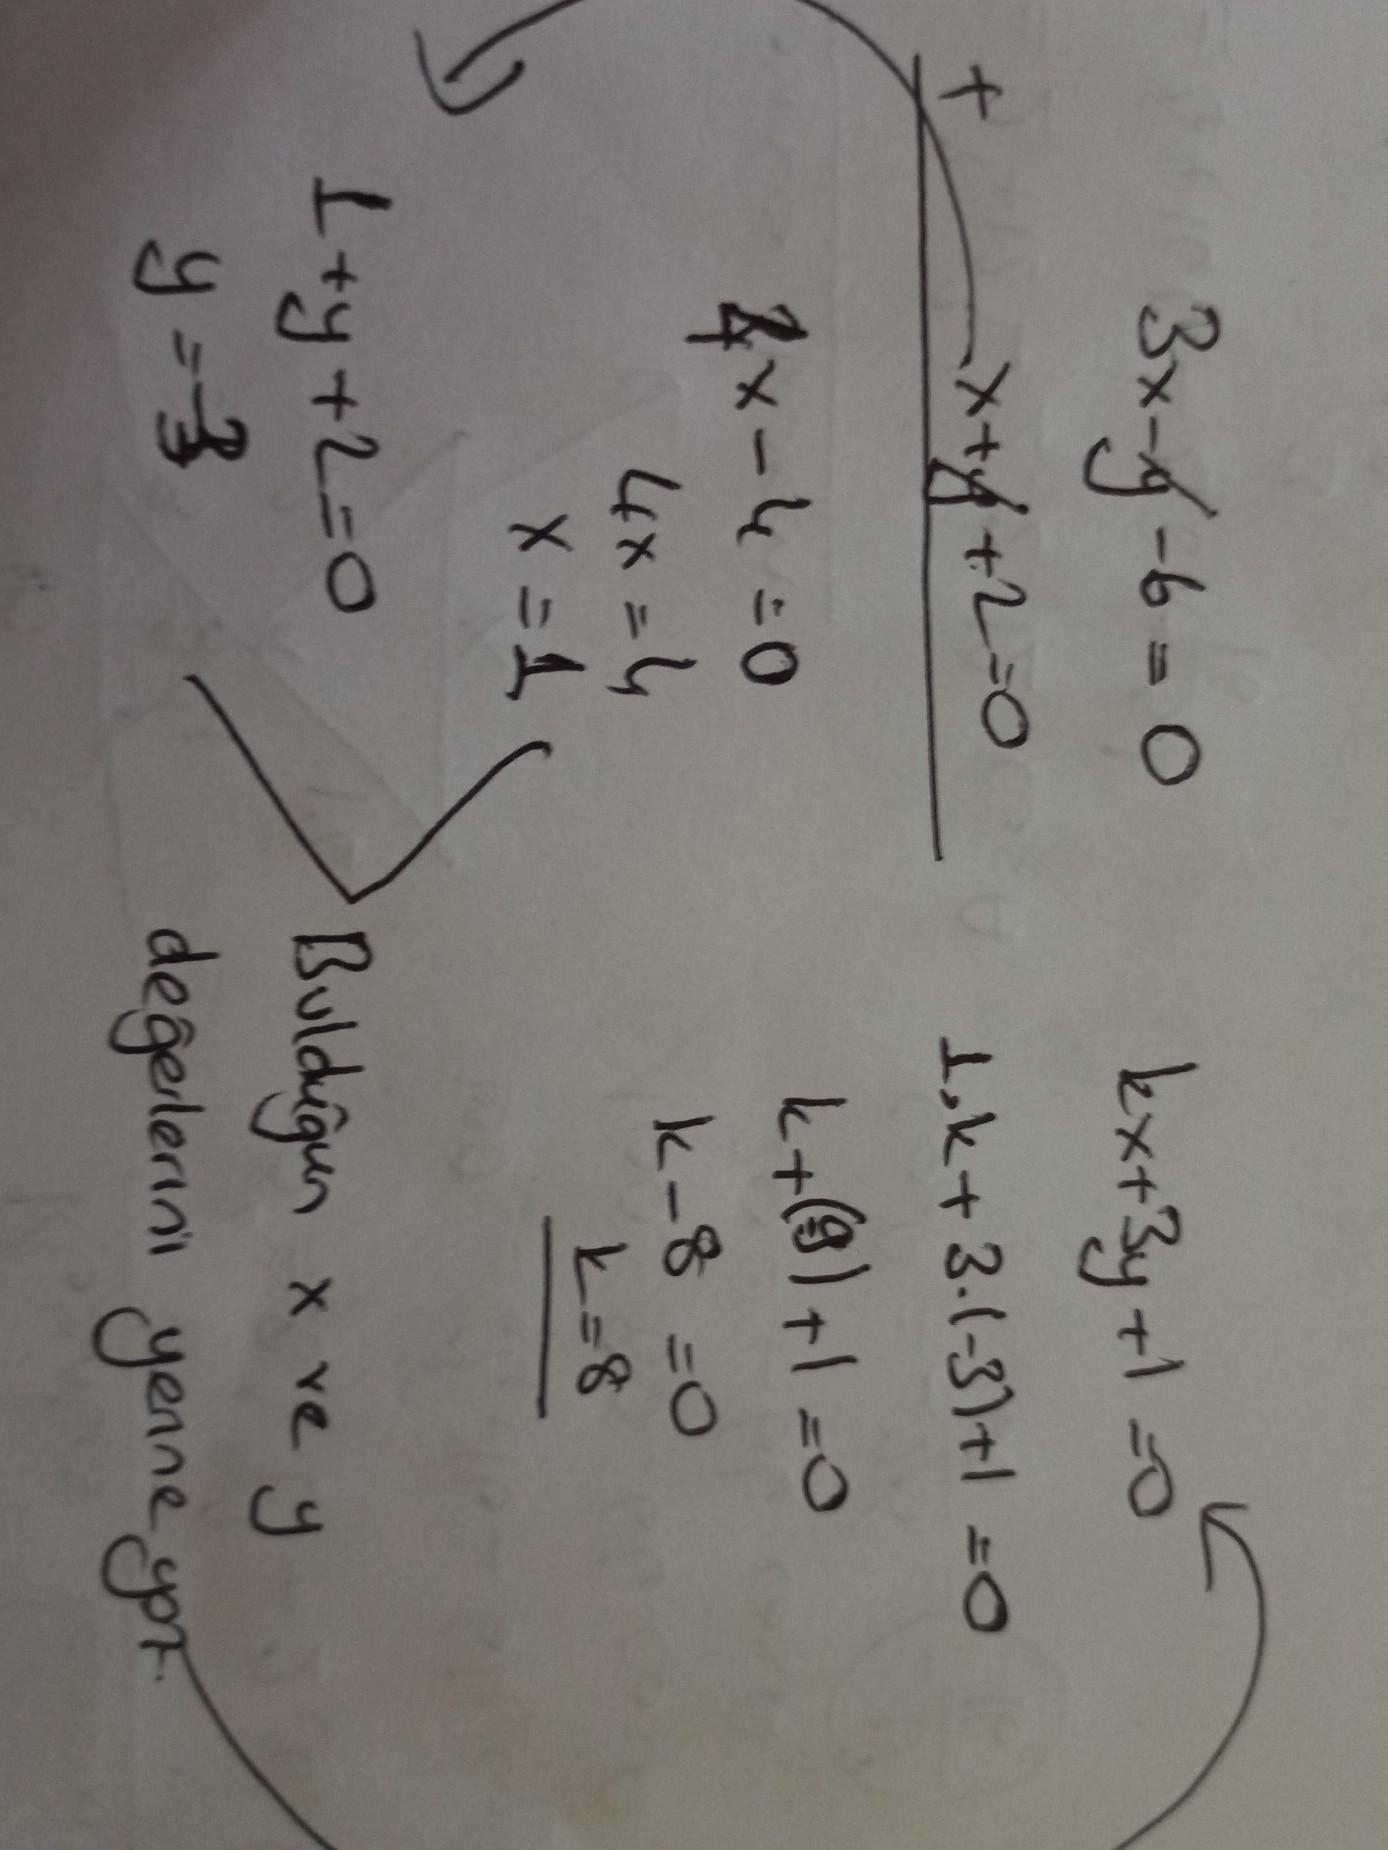 3x-y-6=0
+ x+y+2=0
4x-4=0
4x=4
x=1
1+y+2=0
y=-3
kx+3y+1=0
1.k+3.(-3)+1=0
k+(-9)+1=0
k-8=0
k=8
Bulduğun x ve y
değerlerini yerine yaz.